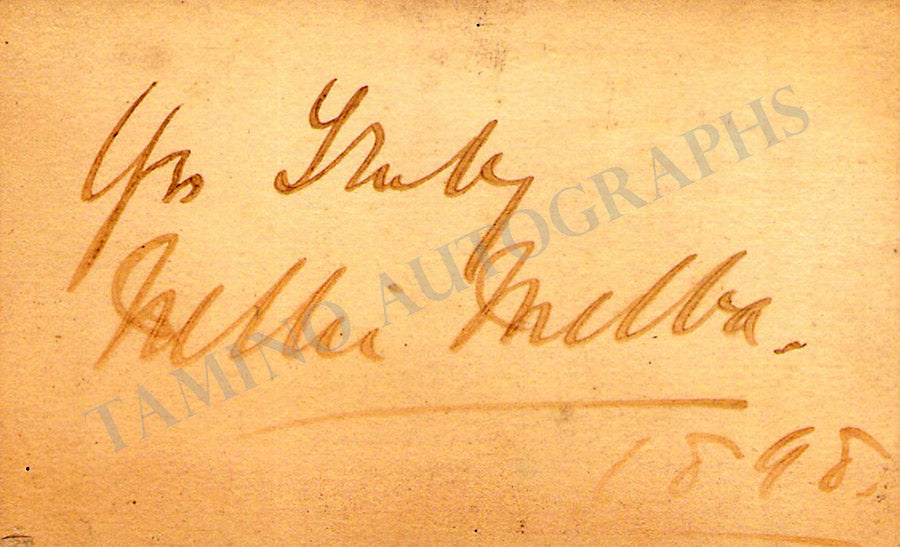 Yrs Truly
Nellie Melba.
1898.
TAMINO AUTOGRAPHS